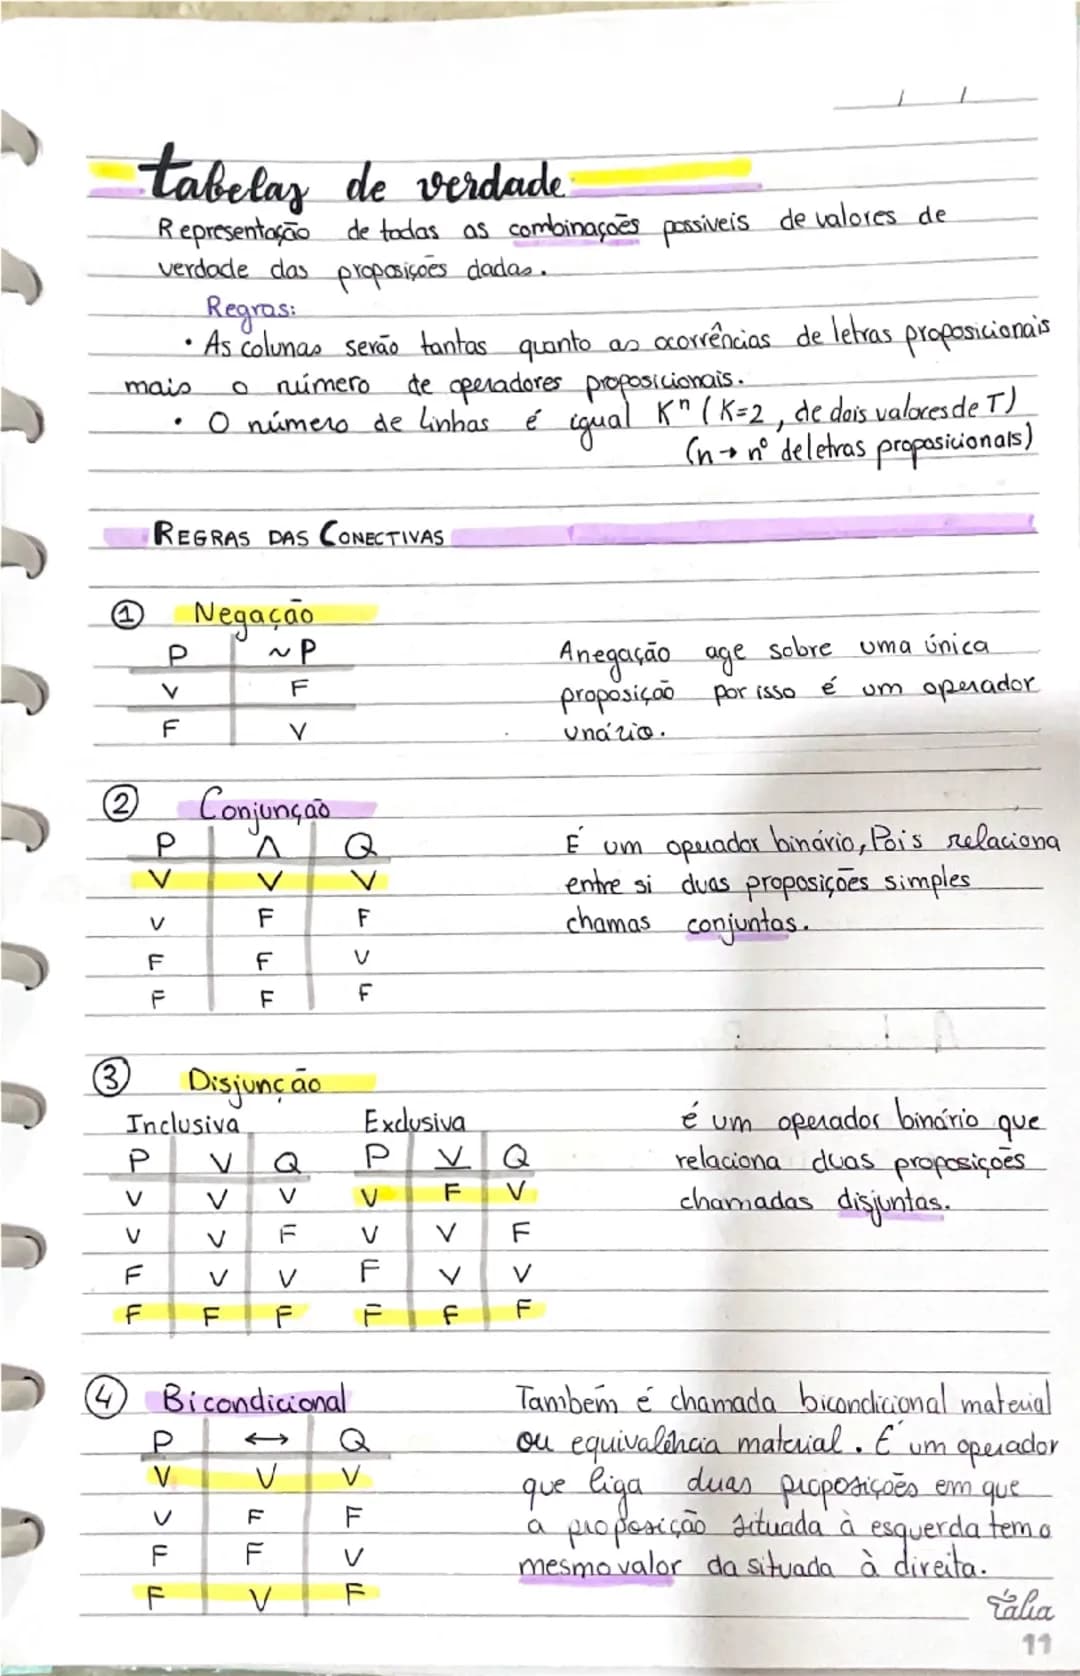 tabelas de verdade
Representação de todas as combinações possiveis de valores de
verdade das proposições dadas.
Regras:
• As colunas serão tantas quanto as ocorrências de letras proposicionais
mais o número de operadores proposicionais.
• O número de linhas é igual Kⁿ (K=2, de dois valores de T)
(n→ nº de letras proposicionais)
REGRAS DAS CONECTIVAS
① Negação
P ~P
V F
F V
A negação age sobre uma única
proposição por isso é um operador
unário.
② Conjunção
P ∧ Q
V V V
V F F
F F V
F F F
É um operador binário, Pois relaciona
entre si duas proposições simples
chamas conjuntas.
③ Disjunção
Inclusiva Exclusiva
P V Q P V Q
V V V V F V
V V F V V F
F V V F V V
F F F F F F
é um operador binário que
relaciona duas proposições
chamadas disjuntas.
④ Bicondicional
P ↔ Q
V V V
V F F
F F V
F V F
Tambem é chamada bicondicional material
ou equivalência material. É um operador
que liga duas proposições em que
a proposição situada à esquerda tem o
mesmo valor da situada à direita.
Tália
11